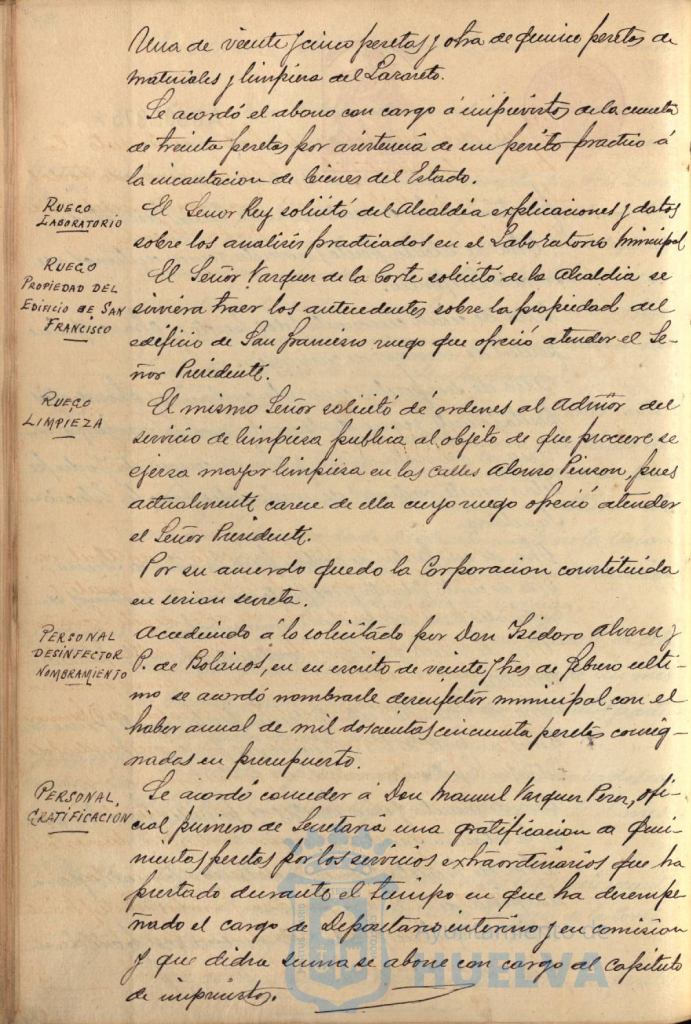 Una de veinte y cinco pesetas y otra de quince pesetas de
materiales y limpieza del Lazareto.
Se acordó el abono con cargo á imprevistos de la cuenta
de treinta pesetas por asistencia de un perito practico á
la incautacion de bienes del Estado.
RUEGO
LABORATORIO
El Señor Rey solicitó del Alcaldia explicaciones y datos
sobre los analisis practicados en el Laboratorio Municipal
RUEGO
PROPIEDAD DEL
EDIFICIO DE SAN
FRANCISCO
El Señor Vazquez de la Corte solicitó de la Alcaldia se
sirviera traer los antecedentes sobre la propiedad del
edificio de San Francisco ruego que ofreció atender el Se-
ñor Presidente.
RUEGO
LIMPIEZA
El mismo Señor solicitó dé ordenes al Admor del
servicio de limpiesa publica al objeto de que procure se
ejersa mayor limpiesa en las calles Alonso Pinzon, pues
actualmente carece de ella cuyo ruego ofreció atender
el Señor Presidente.
Por su acuerdo quedo la Corporacion constituida
en sesion secreta.
PERSONAL
DESINFECTOR
NOMBRAMIENTO
Accediendo á lo solicitado por Don Isidoro Alvarez y
P. de Bolaños, en su escrito de veinte y tres de febrero ulti-
mo se acordó nombrarle desinfector municipal con el
haber anual de mil doscientas cincuenta pesetas consig-
nadas en presupuesto.
PERSONAL,
GRATIFICACION
Se acordó conceder á Don Manuel Vazquez Perez, ofi-
cial primero de Secretaria una gratificacion de Qui-
nientas pesetas por los servicios extraordinarios que ha
prestado durante el tiempo en que ha desempe-
ñado el cargo de Depositario interino y en comision
y que dicha suma se abone con cargo al Capitulo
de imprevistos.
Ayuntamiento de
HUELVA